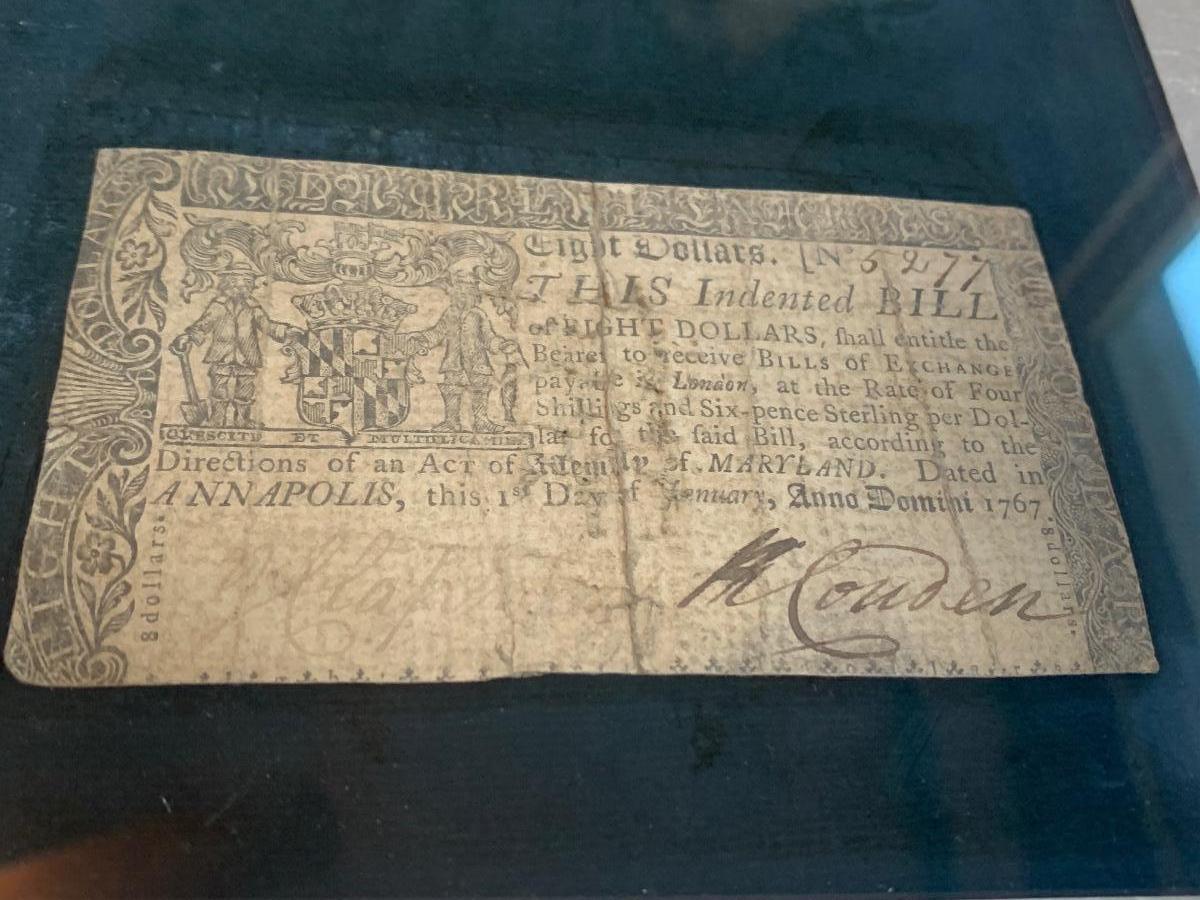 Eight Dollars. [No 5277
THIS Indented BILL
of EIGHT DOLLARS, ſhall entitle the
Bearer to receive BILLS of EXCHANGE
payable in London, at the Rate of Four
Shillings and Six-pence Sterling per Dol-
lar for the ſaid Bill, according to the
CRESCITE ET MULTIPLICAMINI
Directions of an ACT of Aſſembly of MARYLAND. Dated in
ANNAPOLIS, this 1st Day of January, Anno Domini 1767
Couden
8 dollars.
8 dollars.
EIGHT DOLLARS